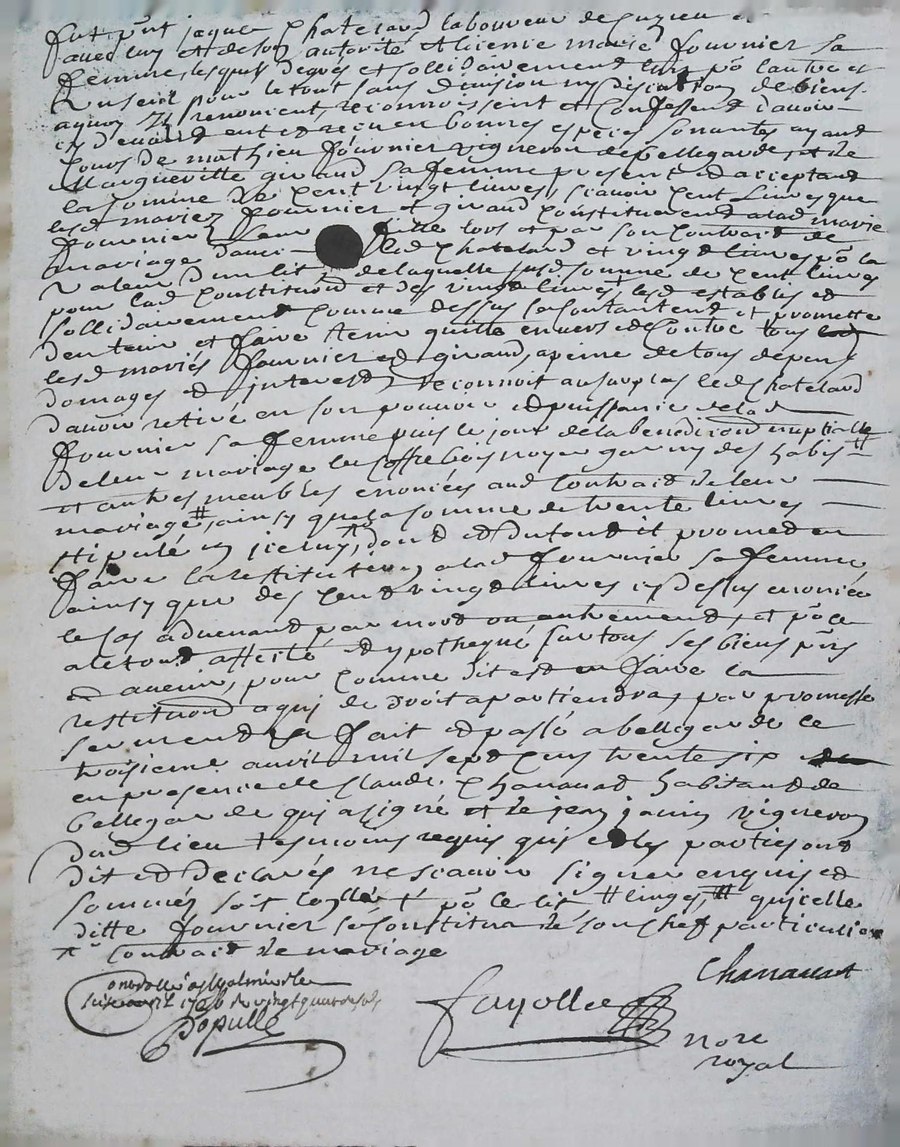 fut pnt jaques Chatelard laboureur de
avec luy et de son autorité et licence marie fournier sa
femme, lesquels de gré et sollidairement lun po lautre et
un seul pour le tout sans division ny discution de biens
aquoy ils renoncent reconnoissent et Confessent davoir
cy devant eut et receu en bonnes especes sonnantes ayant
Cours de mathieu fournier vigneron de bellegarde, et de
Margueritte giraud sa femme present et acceptant
la somme de Cent vingt livres, scavoir Cent livres que
lesd mariez fournier et giraud Constituerent a lad marie
fournier leur fille lors et par son Contrait de
mariage avec led Chatelard et vingt livres po la
valeur dun lit, de laquelle susd somme de Cent livres
pour lad Constitution et des vingt livres lesd establis et
sollidairement Comme dessus se Contentent et promette
den tenir et faire tenir quitte envers et Contre tous
lesd mariés fournier et giraud, a peine de tous depens
domages et interest, Reconnoit au surplus led Chatelard
davoir retiré en son pouvoir et puissance de lad
fournier sa femme puis le jour de la benediction nuptialle
de leur mariage le Coffre bois noyer garny des habis #
et autres meubles enoncées aud Contrait de leur
mariage # ainsy que la somme de trente livres
stipulé en iceluy, dont et du tout il promet en
faire la restitution a lad fournier sa femme
ainsy que des Cent vingt livres cy dessus enoncée
le cas advenant par mort ou autrement, et po ce
a le tout affecté et ypothequé sur tous ses biens pnts
et avenir, pour Comme dit est en faire la
restitution a qui de droit apartiendra, par promesse
serment &a fait et passé a bellegarde le
troisieme avril mil sept Cens trente six
en presence de Claude Chanavat habitant de
bellegarde qui a signé et de jean janin vigneron
dud lieu tesmoins requis qui et les parties ont
dit et declarés ne scavoir signer enquis et
sommés soit Collé po le lit # linges, ### quicelle
ditte fournier se Constitua de son Chef particulier
Contrait de mariage
Chanavat
avril 1736 du vingt quatre sols
Populle
fayolle
nore
royal